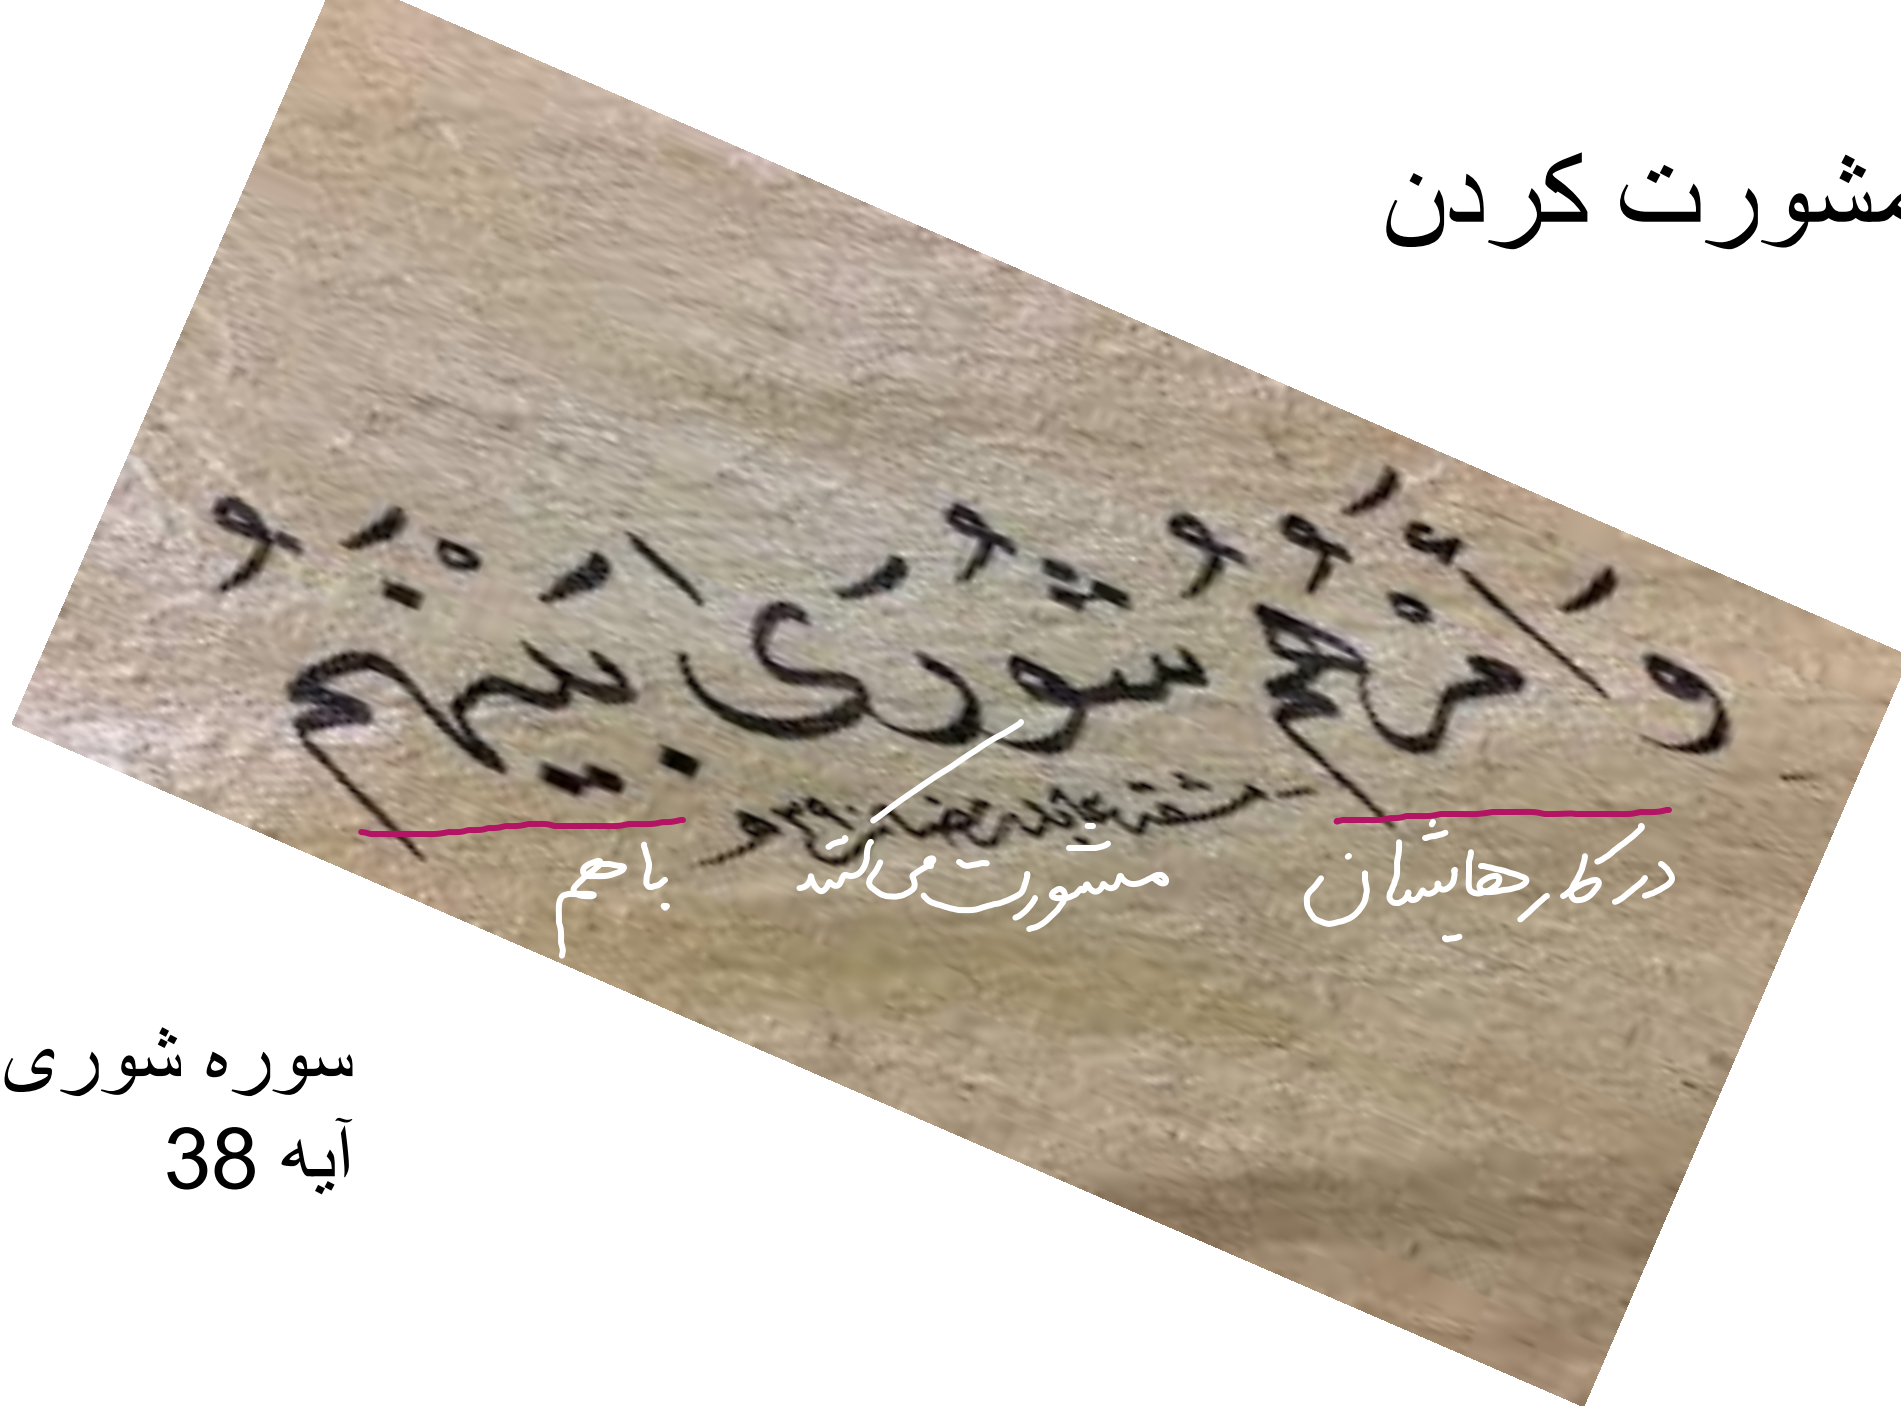 مشورت کردن
وَأَمْرُهُمْ شُورَىٰ بَيْنَهُمْ
در کارهایشان مشورت می‌کنند باهم
سوره شوری
آیه 38